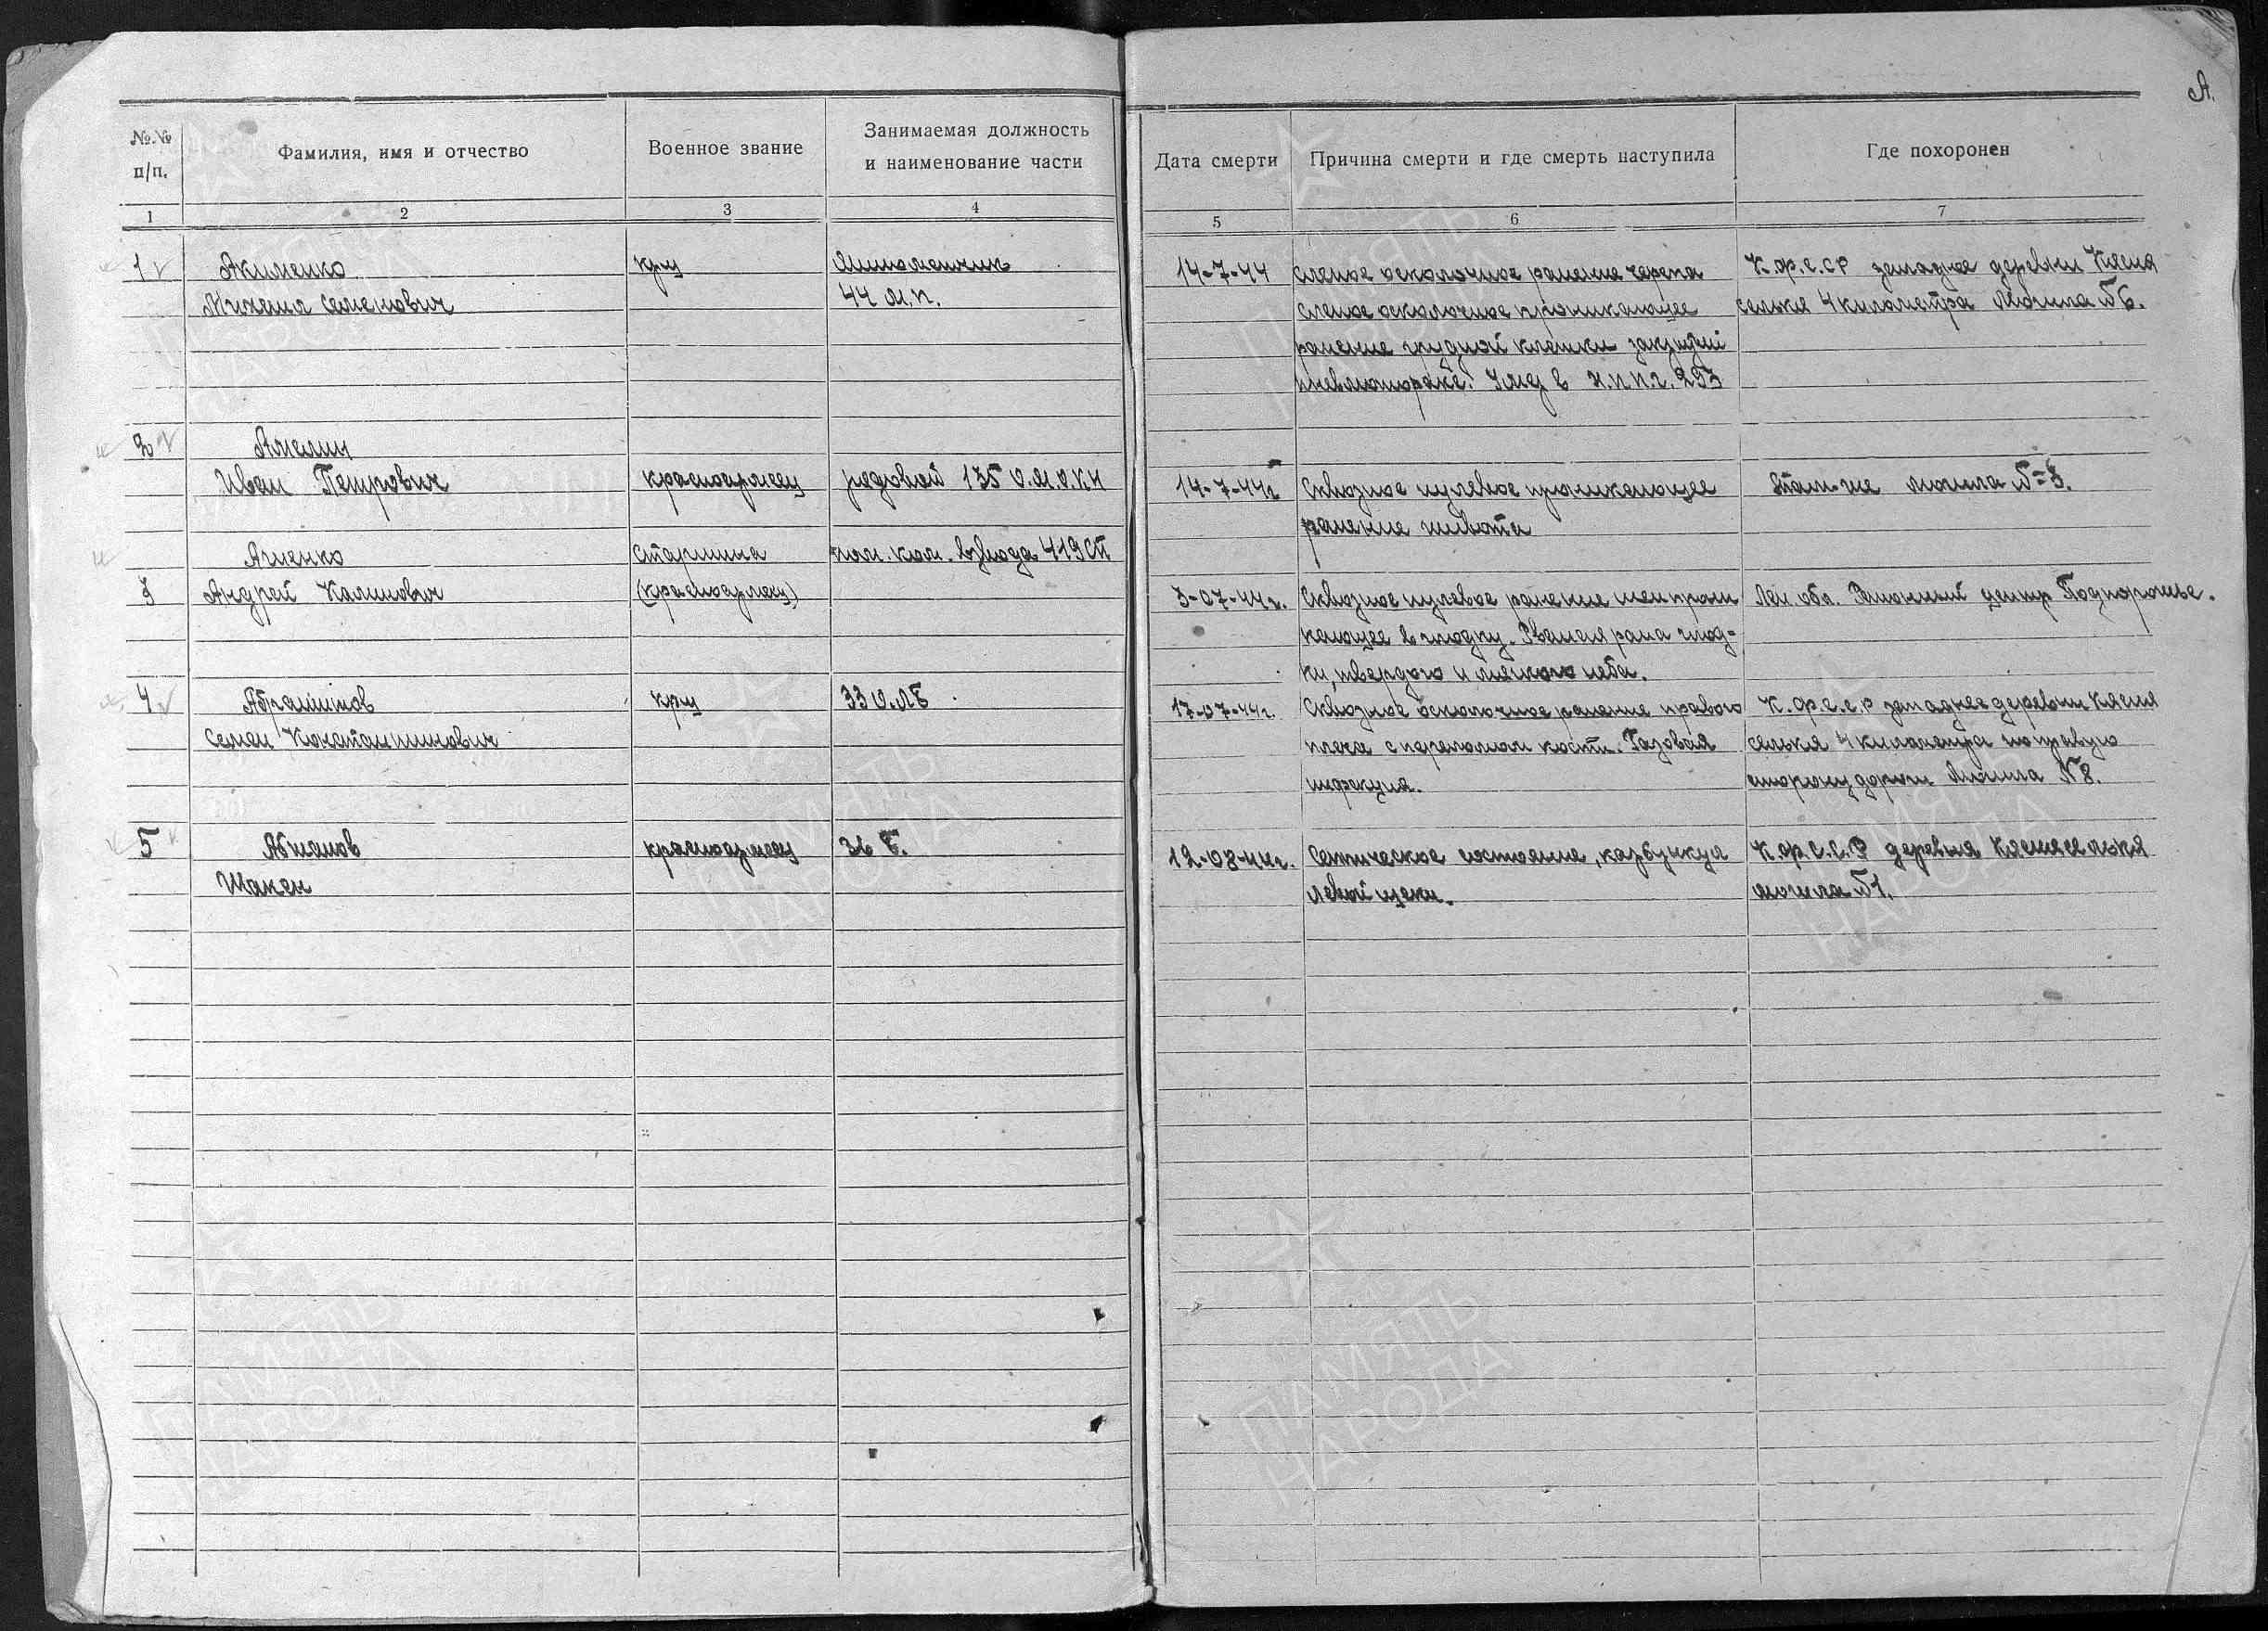 А.
№.№ п/п.
Фамилия, имя и отчество
Военное звание
Занимаемая должность
и наименование части
Дата смерти
Причина смерти и где смерть наступила
Где похоронен
1 2 3 4 5 6 7
1 Акименко крц Минометчик 14-7-44 слепое осколочное ранение черепа К.ф.с.ср западнее деревни Кясня
Михаил Семенович 44 м.п. слепое осколочное проникающее селькя 4 километра Могила №6.
ранение грудной клетки
пневмоторакс. Умер в х.п.п.г. 293
2 Амелин
Иван Петрович красноармеец рядовой 135 14-7-44г Сквозное пулевое проникающее Там-же могила №=3.
ранение живота
Агиенко Старшина пом. ком. взвода 419 СП
3 Андрей Калинович (красноармеец) 3-07-44г. Сквозное пулевое ранение шеи Лен. обл. Районный центр Подпорожье.
кающее в глотку. Рваная рана глот=
ки, твердого и мягкого неба.
4 Абрамимов крц 33 17-07-44г. Сквозное осколочное ранение правого К.ф.с.с.р западнее деревни Кясня
Семен Константинович плеча с переломом кости. Газовая селькя 4 километра по правую
инфекция. сторону дороги Могила №8.
5 Абжанов красноармеец 36 Б. 12-08-44г. Септическое состояние, карбункул К.ф.С.С.Р деревня Кяснясельскя
Шакен левой щеки. могила №1.
ПАМЯТЬ
НАРОДА